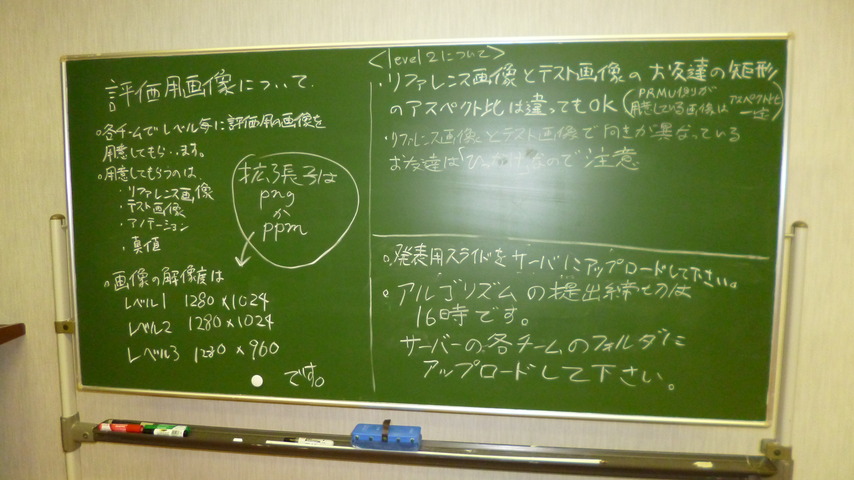 評価用画像について
○各チームでレベル毎に評価用の画像を
用意してもらいます。
○用意してもらうのは、
・リファレンス画像
・テスト画像
・アノテーション
・真値
拡張子は
png
か
ppm
○画像の解像度は
レベル1 1280×1024
レベル2 1280×1024
レベル3 1280×960
です。
<level 2について>
・リファレンス画像とテスト画像のお友達の矩形
のアスペクト比は違ってもOK
(PRMU側が
用意している画像は
アスペクト比
一定)
・リファレンス画像とテスト画像で向きが異なっている
お友達は なので注意
○発表用スライドをサーバにアップロードして下さい。
○アルゴリズムの提出締切は
16時です。
サーバーの各チームのフォルダに
アップロードして下さい。